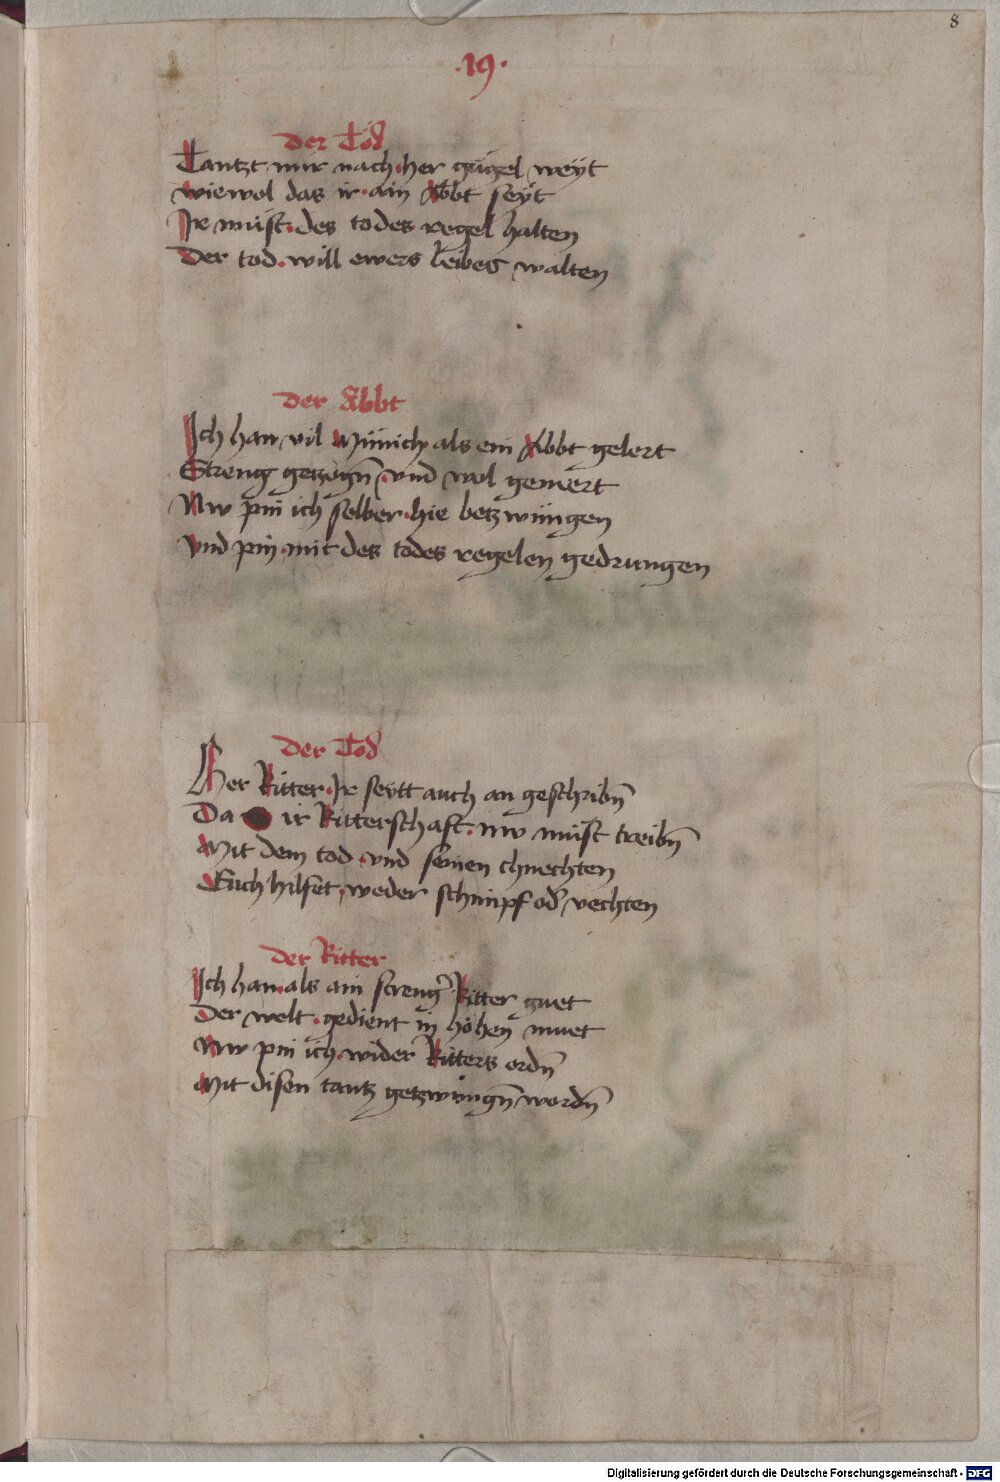 8
·19·
Der Tod
Tantzt mir nach her gugel weyt
wiewol das ir ain Abbt seyt
Ir must des todes regel halten
Der tod will ewers leibes walten
Der Abbt
Ich han vil Münich als ein Abbt gelert
Streng getzogn̄ vnd wol gemert
Nw pin ich selber hie betzwungen
Vnd pin mit des todes regelen gedrungen
Der Tod
Her Ritter Ir seytt auch an geschribn̄
Da ir Ritterschaft nw müst treibn̄
Mit dem tod vnd seinen chnechten
Euch hilfet weder schimpf od̄ vechten
Der Ritter
Ich han als ain strenḡ Ritter guet
Der welt gedient in hohen muet
Nw pin ich wider Ritters ordn̄
Mit disen tantz getzwungn̄ wordn̄
Digitalisierung gefördert durch die Deutsche Forschungsgemeinschaft - DFG